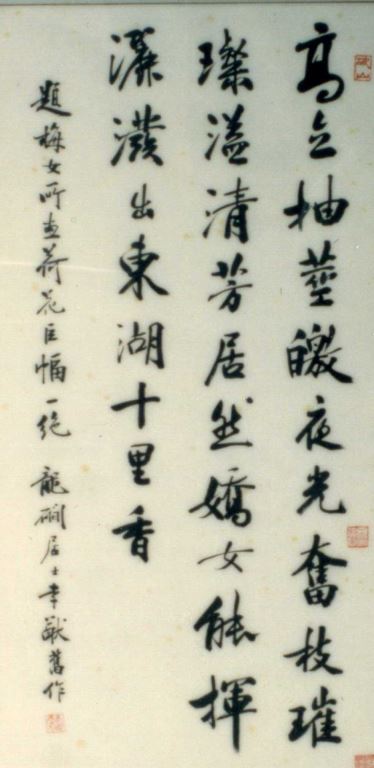 高立抽莖皦夜光奮枝璀
璨溢清芳居然嬌女能揮
灑潑出東湖十里香
題梅女所畫荷花巨幅一絕 龍磵居士幸猷舊作